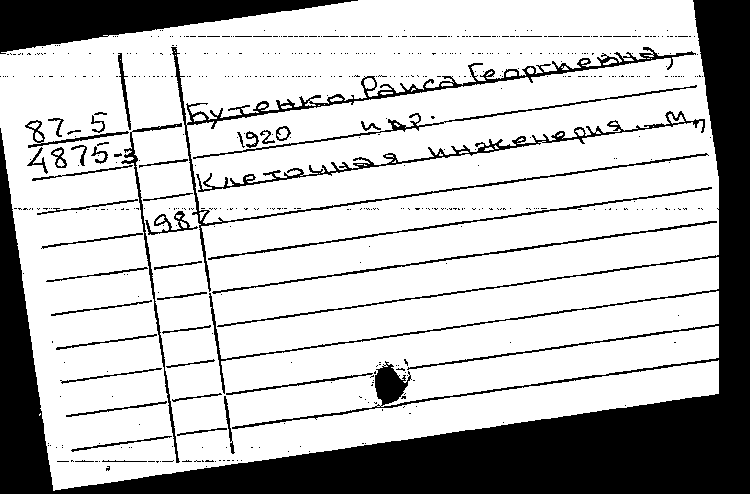 87-5
4875-3
Бутенко, Раиса Георгиевна,
1920 и др.
Клеточная инженерия. — М.,
1987.